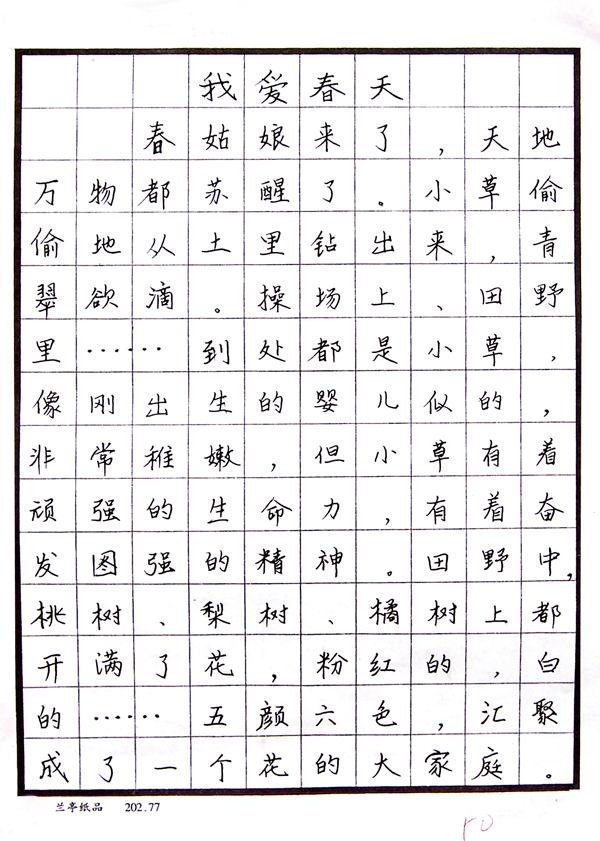 我爱春天
春姑娘来了，天地
万物都苏醒了。小草偷
偷地从土里钻出来，青
翠欲滴。操场上、田野
里……到处都是小草，
像刚出生的婴儿似的，
非常稚嫩，但小草有着
顽强的生命力，有着奋
发图强的精神。田野中，
桃树、梨树、橘树上都
开满了花，粉红的，白
的……五颜六色，汇聚
成了一个花的大家庭。
兰亭纸品 202.77